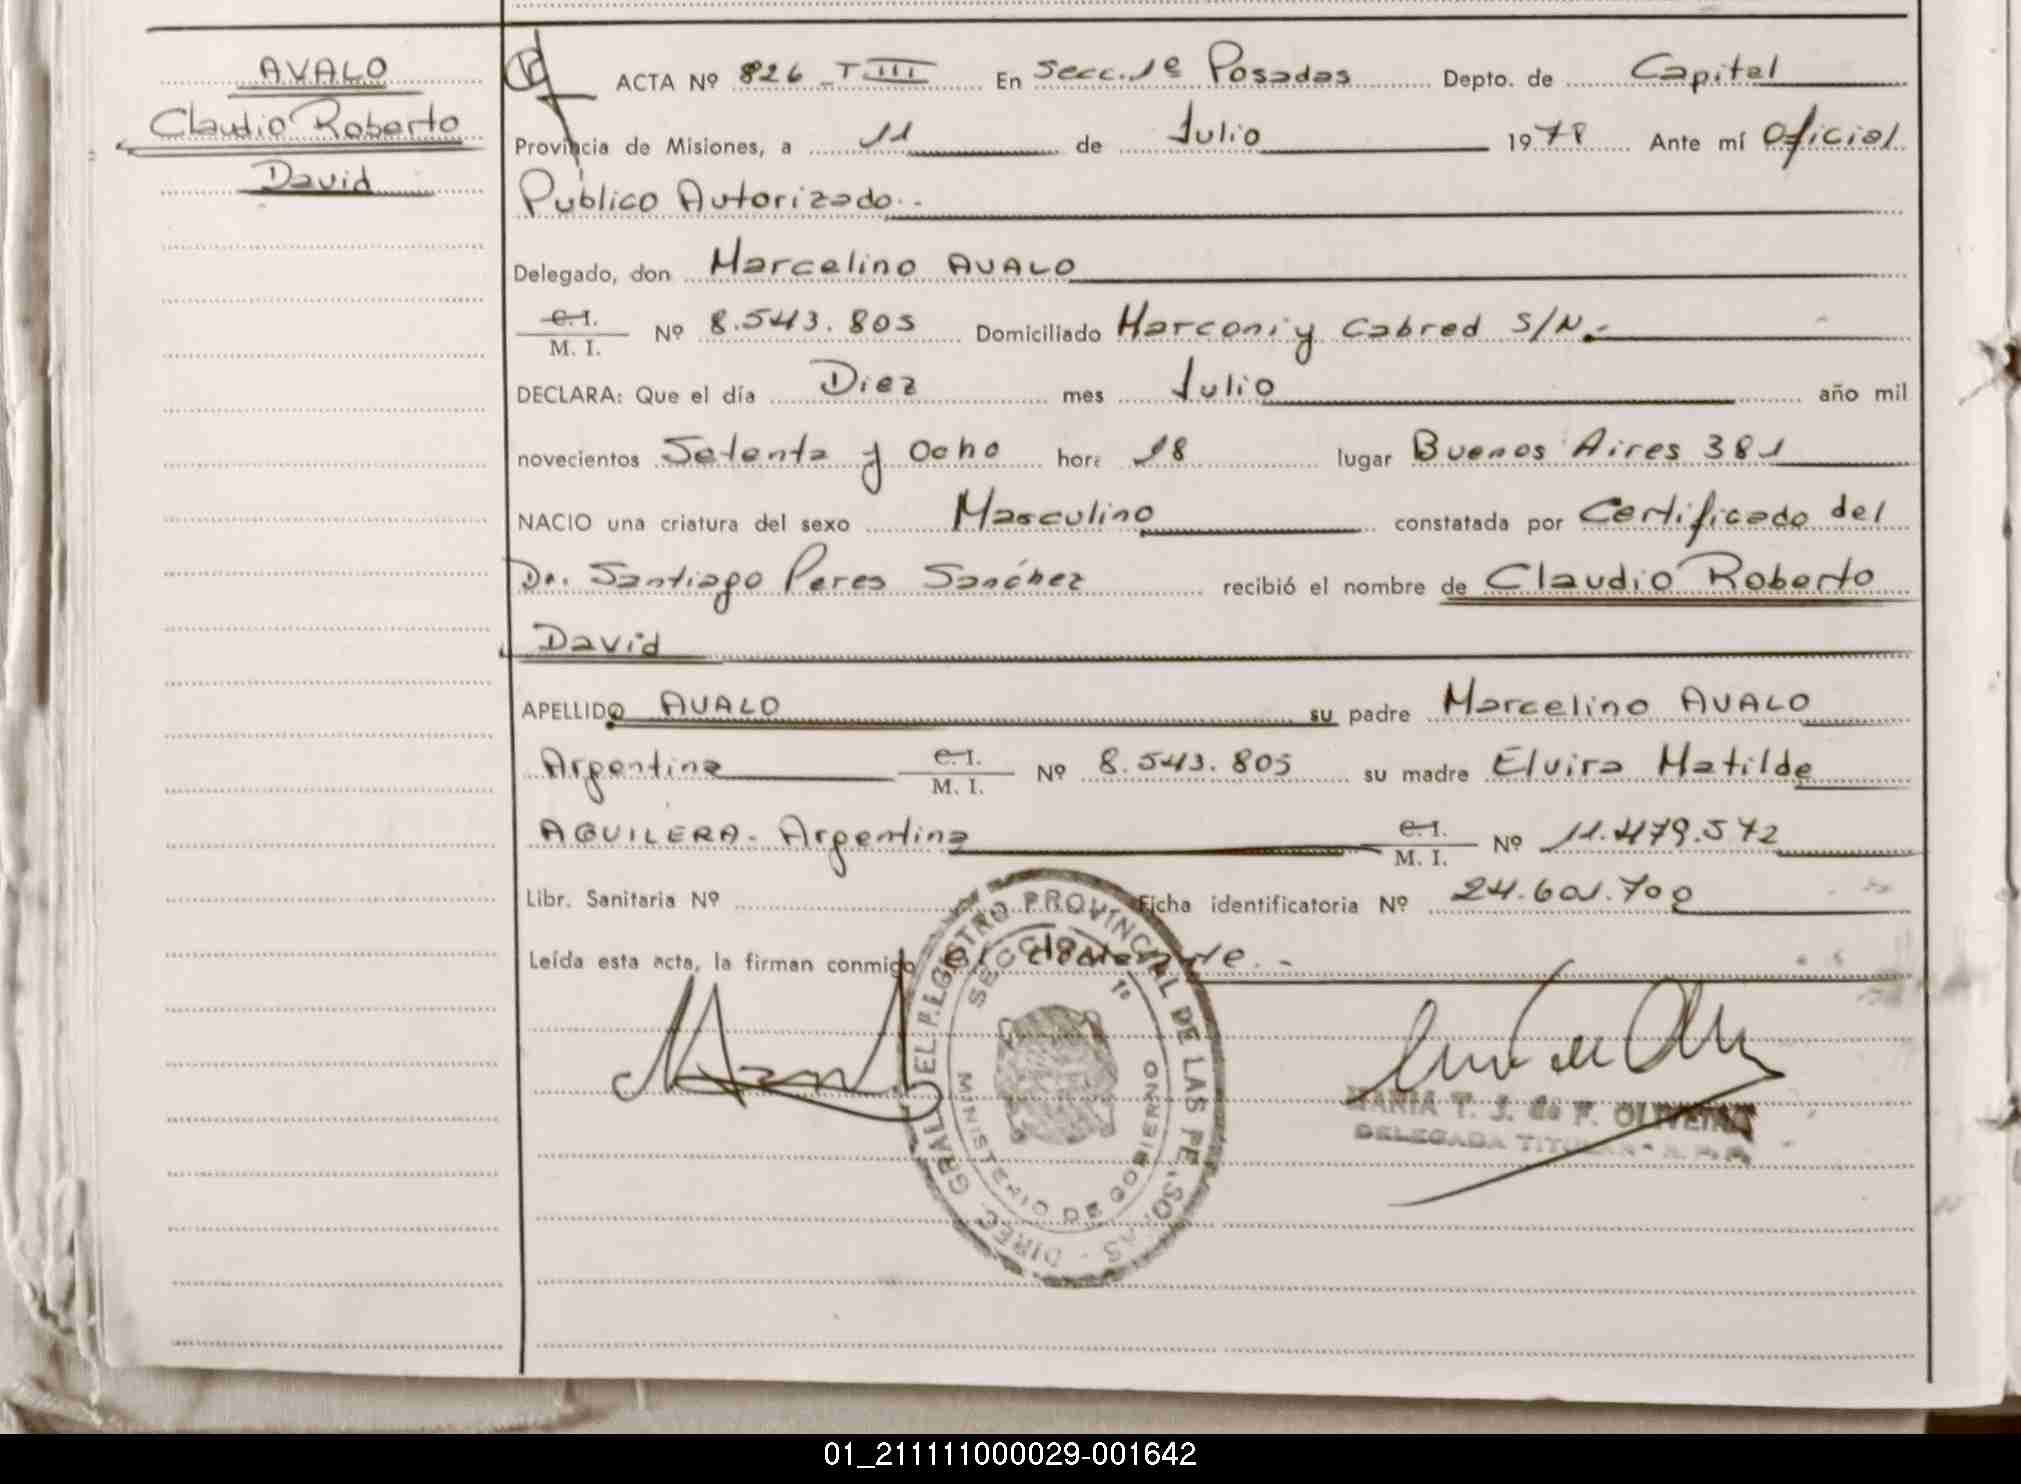 AVALO
Claudio Roberto
David
ACTA Nº 826 - T III En Secc. 1º Posadas Depto. de Capital
Provincia de Misiones, a 11 de Julio 1978 Ante mí Oficial
Publico Autorizado.-
Delegado, don Marcelino AVALO
C. I. M. I. Nº 8.543.805 Domiciliado Marconi y Cabred S/N.-
DECLARA: Que el día Diez mes Julio año mil
novecientos Setenta y Ocho hora 18 lugar Buenos Aires 381
NACIO una criatura del sexo Masculino constatada por Certificado del
Dr. Santiago Peres Sanchez recibió el nombre de Claudio Roberto
David
APELLIDO AVALO su padre Marcelino AVALO
Argentina C. I. M. I. Nº 8.543.805 su madre Elvira Matilde
AGUILERA - Argentina C. I. M. I. Nº 11.479.572
Libr. Sanitaria Nº Ficha identificatoria Nº 24.601.700
Leída esta acta, la firman conmigo el declarante.-
DIREC. GRAL. DEL REGISTRO PROVINCIAL DE LAS PERSONAS
SECCION 1º
MINISTERIO DE GOBIERNO
MARIA T. J. de F. OLIVEIRA
DELEGADA TITULAR - R. P. P.
01_211111000029-001642